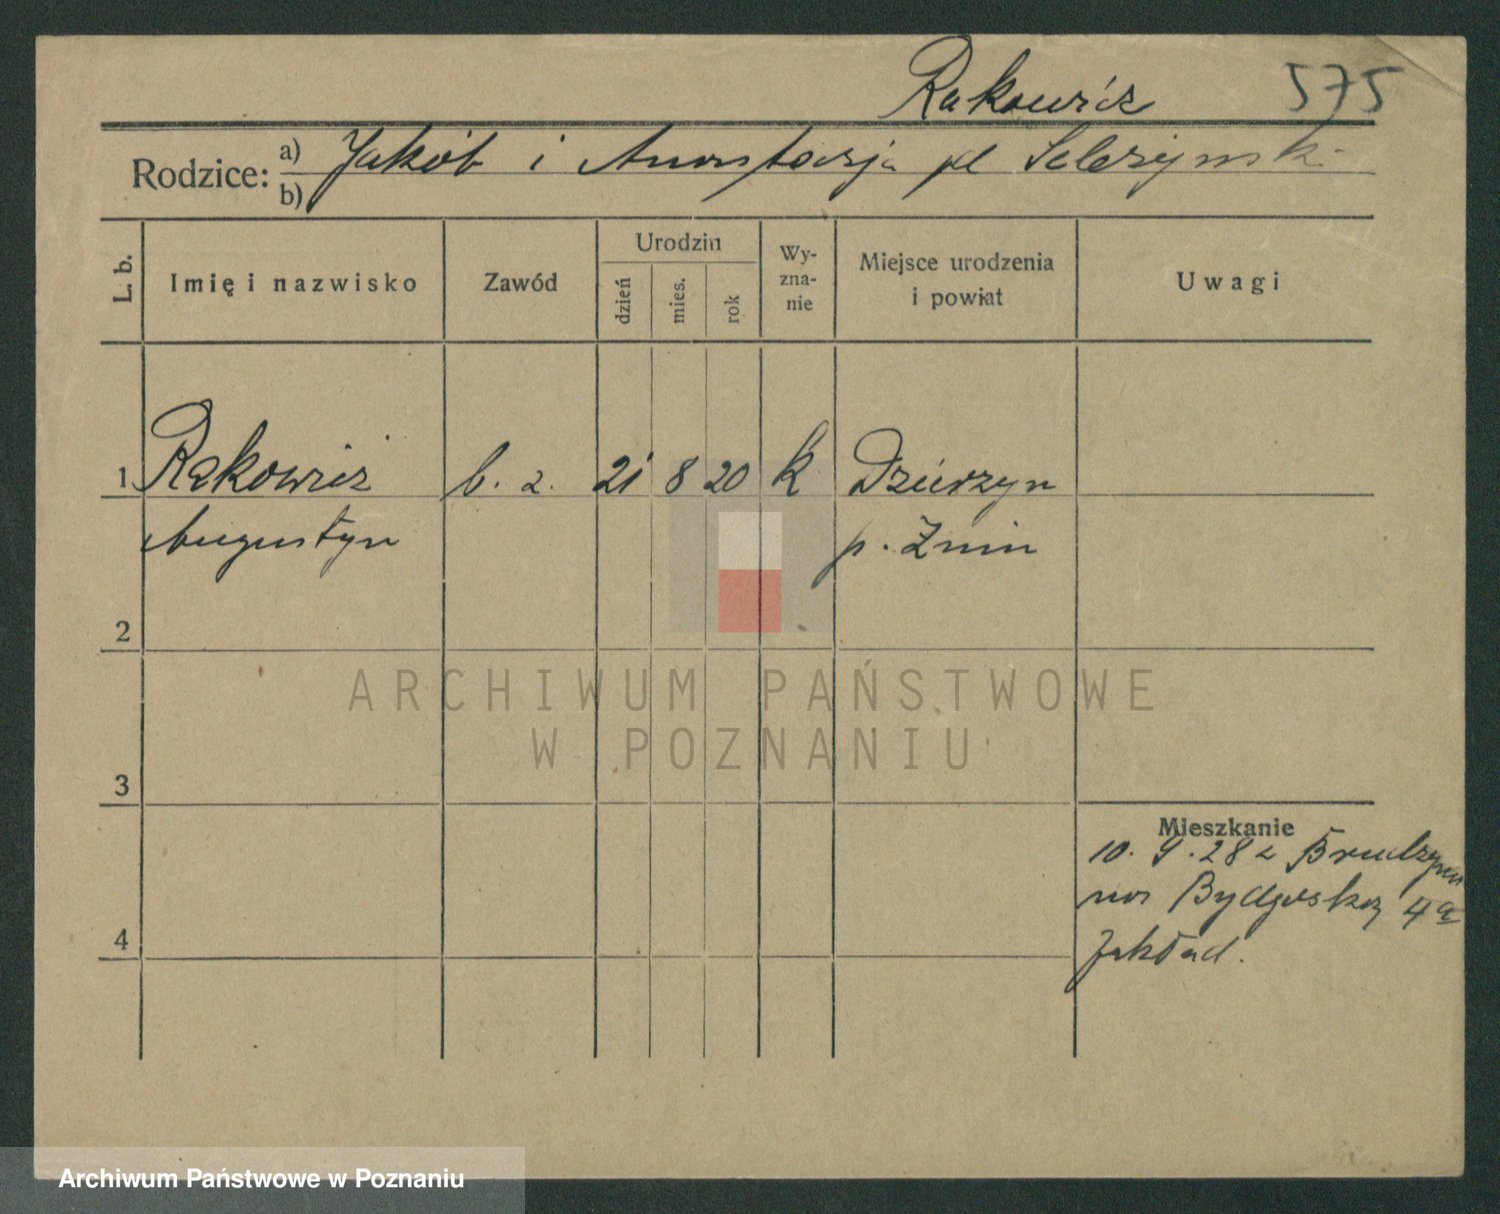 Rakowicz 575
Rodzice: a) b) Jakób i Anastazja
L. b.
Imię i nazwisko
Zawód
Urodzin
dzień
mies.
rok
Wy-
zna-
nie
Miejsce urodzenia
i powiat
Uwagi
1 Rakowicz b. z. 21 8 20 k
Augustyn p. Żnin
2
3
4
Mieszkanie
10. 9. 28 z
Bydgoska 4a
Zakład.
ARCHIWUM PAŃSTWOWE
W POZNANIU
Archiwum Państwowe w Poznaniu